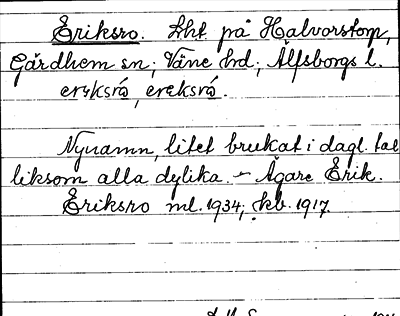 Eriksro. Lht på Halvorstorp,
Gärdhem sn; Väne hd; Älfsborgs l.
eriksró, ereksró.
Nynamn, litet brukat i dagl. tal
liksom alla dylika. – Ägare Erik.
Eriksro ml. 1934; kb. 1917.